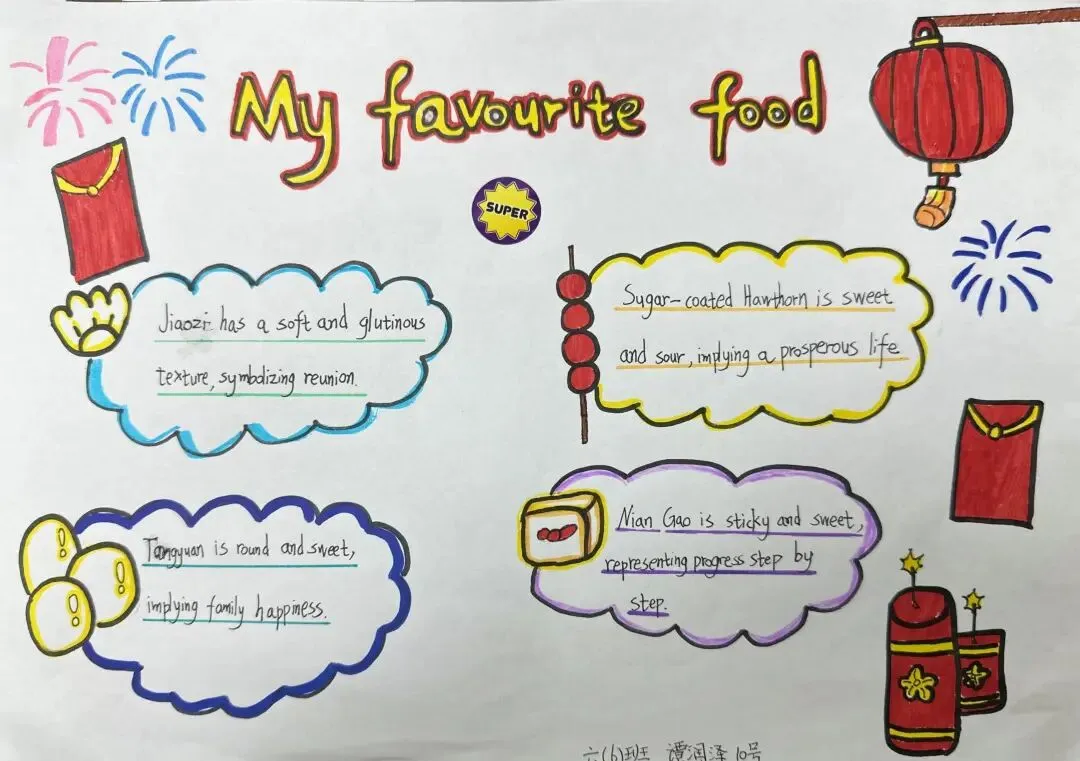 My favourite food
SUPER
Jiaozi has a soft and glutinous
texture, symbolizing reunion.
Sugar-coated Hawthorn is sweet
and sour, implying a prosperous life.
Tangyuan is round and sweet,
implying family happiness.
Nian Gao is sticky and sweet,
representing progress step by
step.
六(6)班 谭润泽 10号